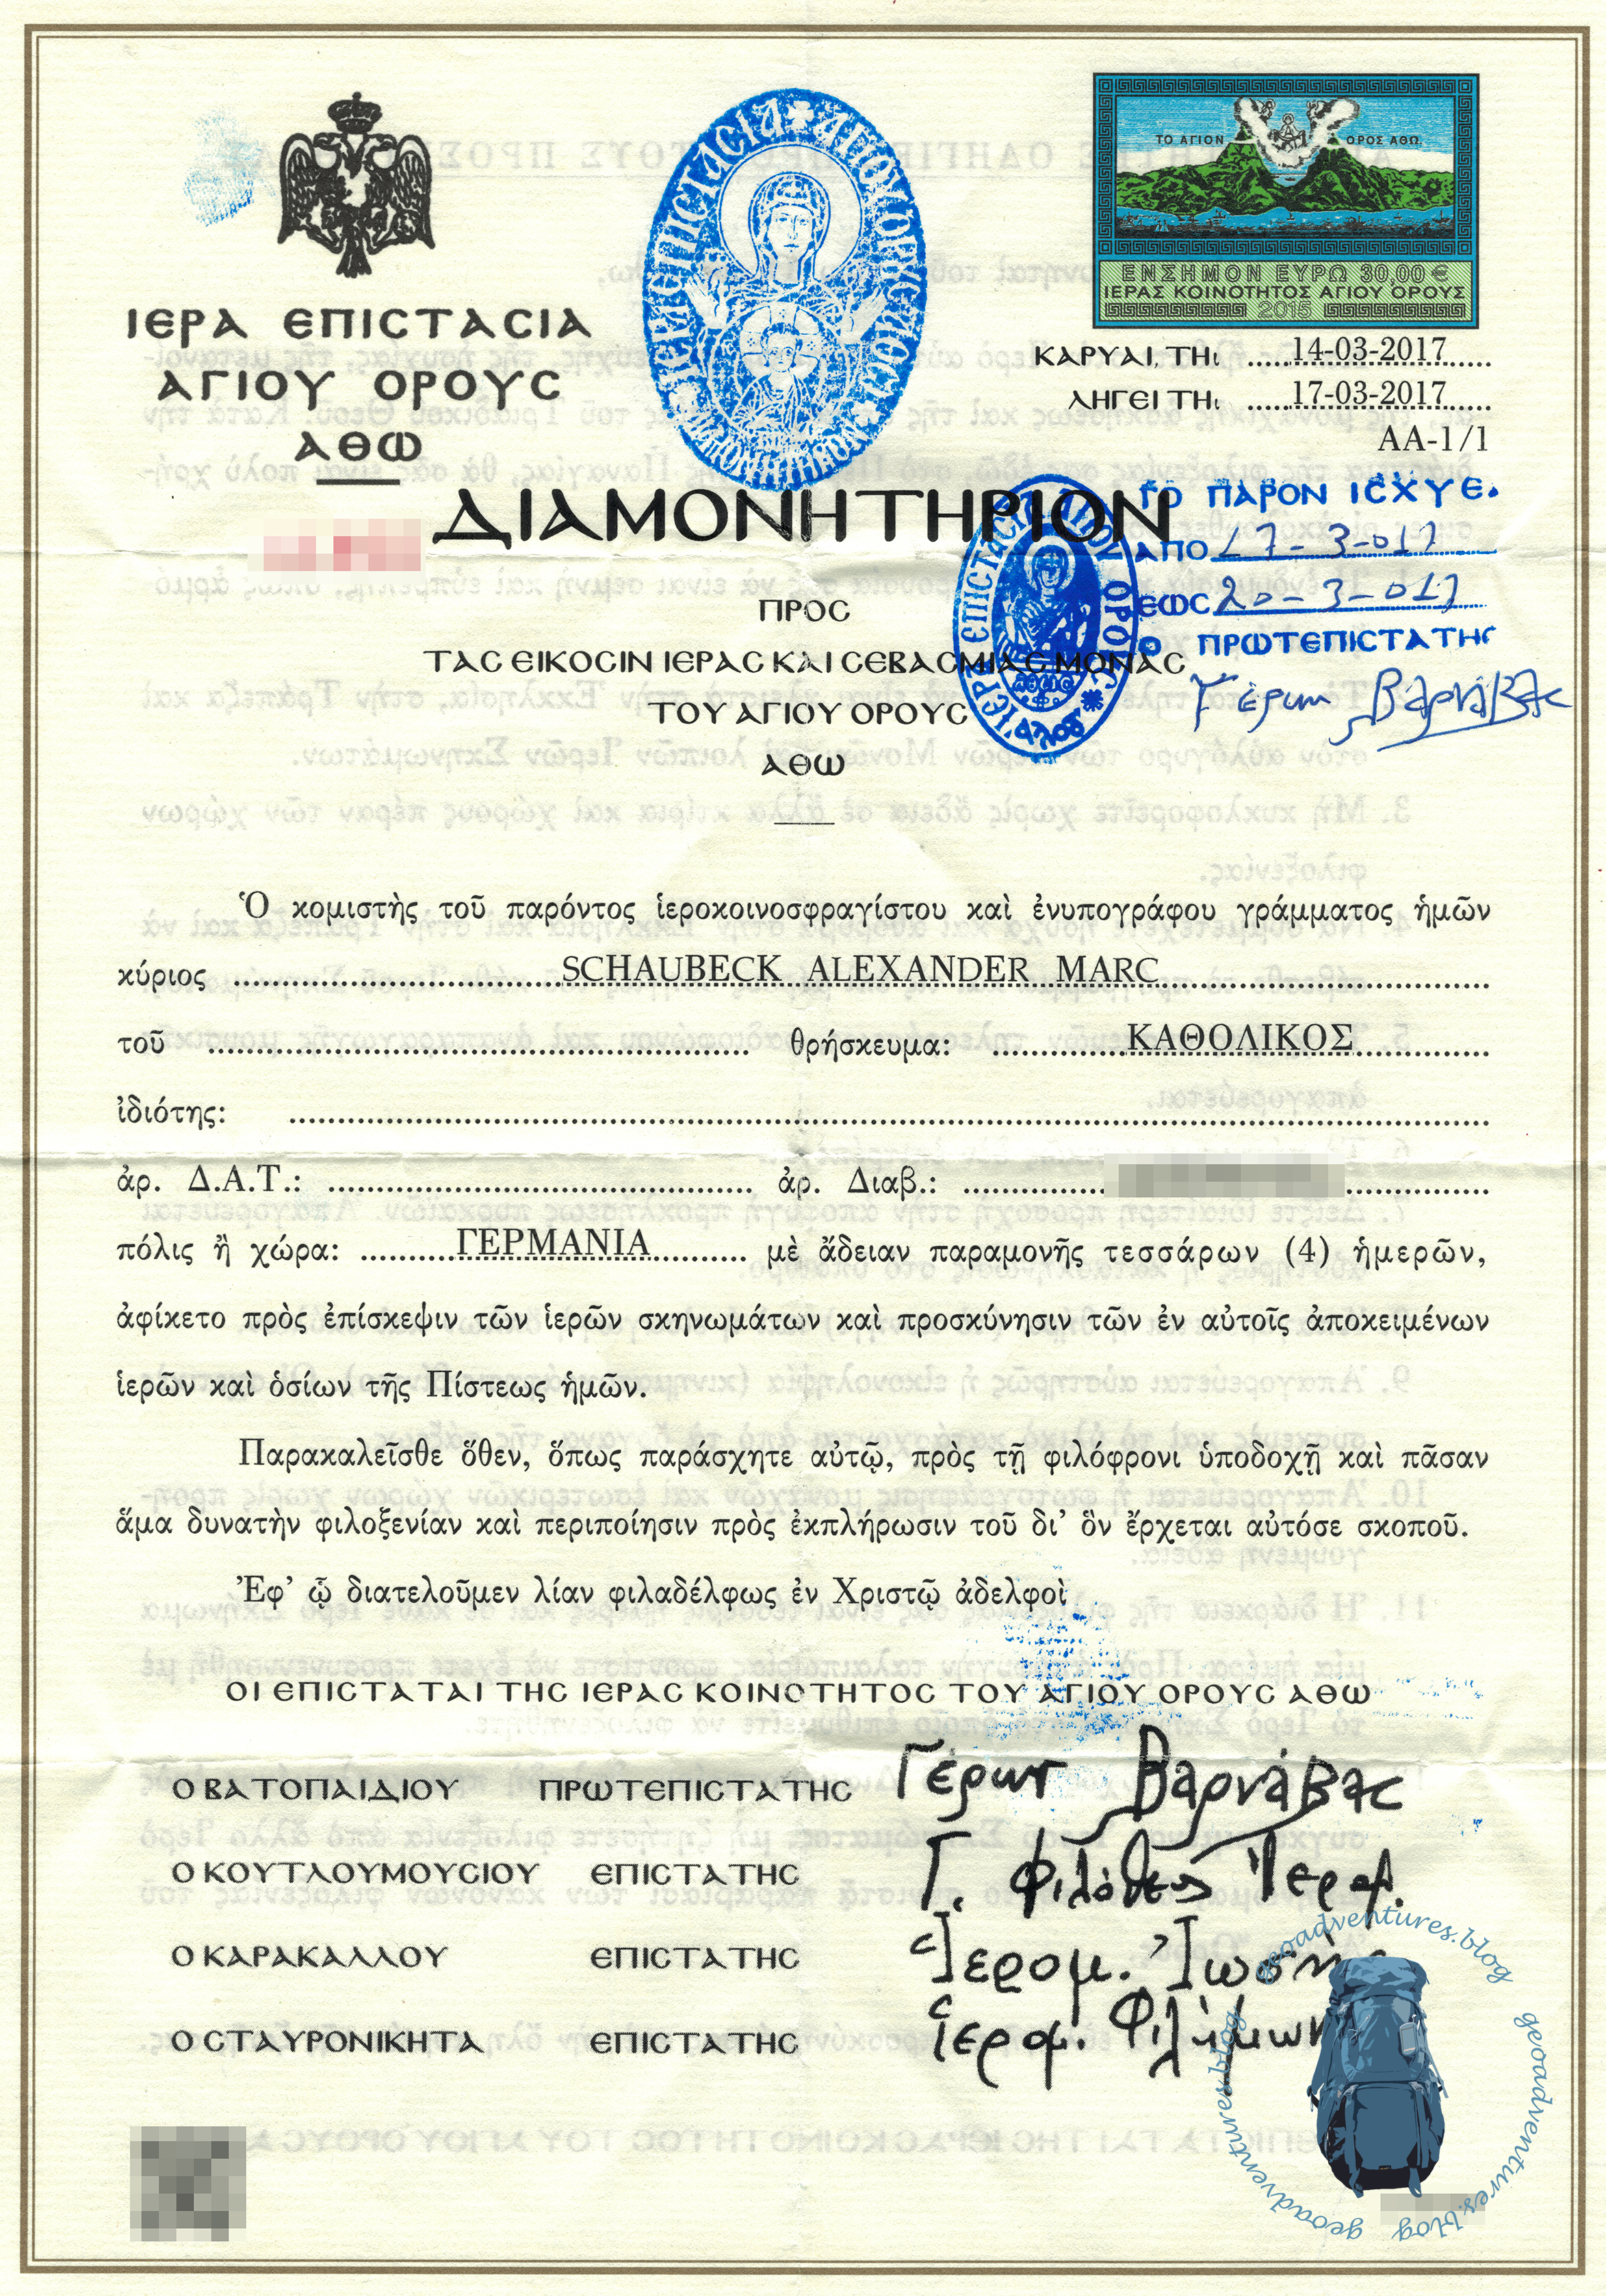 ΙΕΡΑ ΕΠΙCΤΑCΙΑ
ΑΓΙΟΥ ΟΡΟΥC
ΑΘΩ
ΙΕΡΑ ΕΠΙCΤΑCΙΑ ΑΓΙΟΥ ΟΡΟΥC
ΤΟ ΑΓΙΟΝ ΟΡΟΣ ΑΘΩ
ΕΝΣΗΜΟΝ ΕΥΡΩ 30,00 €
ΙΕΡΑΣ ΚΟΙΝΟΤΗΤΟΣ ΑΓΙΟΥ ΟΡΟΥΣ
2015
ΚΑΡΥΑΙ, ΤΗι 14-03-2017
ΛΗΓΕΙ ΤΗι 17-03-2017
AA-1/1
ΔΙΑΜΟΝΗΤΗΡΙΟΝ
ΤΟ ΠΑΡΟΝ ΙCΧΥΕΙ
ΑΠΟ 17-3-017
ΕΩC 20-3-017
Ο ΠΡΩΤΕΠΙCΤΑΤΗC
Γέρων Βαρνάβας
ΠΡΟC
ΤΑC ΕΙΚΟCΙΝ ΙΕΡΑC ΚΑΙ CΕΒΑCΜΙΑC ΜΟΝΑC
ΤΟΥ ΑΓΙΟΥ ΟΡΟΥC
ΑΘΩ
Ὁ κομιστὴς τοῦ παρόντος ἱεροκοινοσφραγίστου καὶ ἐνυπογράφου γράμματος ἡμῶν
κύριος SCHAUBECK ALEXANDER MARC
τοῦ θρήσκευμα: ΚΑΘΟΛΙΚΟΣ
ἰδιότης:
ἀρ. Δ.Α.Τ.: ἀρ. Διαβ.:
πόλις ἢ χώρα: ΓΕΡΜΑΝΙΑ μὲ ἄδειαν παραμονῆς τεσσάρων (4) ἡμερῶν,
ἀφίκετο πρὸς ἐπίσκεψιν τῶν ἱερῶν σκηνωμάτων καὶ προσκύνησιν τῶν ἐν αὐτοῖς ἀποκειμένων
ἱερῶν καὶ ὁσίων τῆς Πίστεως ἡμῶν.
Παρακαλεῖσθε ὅθεν, ὅπως παράσχητε αὐτῷ, πρὸς τῇ φιλόφρονι ὑποδοχῇ καὶ πᾶσαν
ἅμα δυνατὴν φιλοξενίαν καὶ περιποίησιν πρὸς ἐκπλήρωσιν τοῦ δι' ὃν ἔρχεται αὐτόσε σκοποῦ.
Ἐφ' ᾧ διατελοῦμεν λίαν φιλαδέλφως ἐν Χριστῷ ἀδελφοὶ
ΟΙ ΕΠΙCΤΑΤΑΙ ΤΗC ΙΕΡΑC ΚΟΙΝΟΤΗΤΟC ΤΟΥ ΑΓΙΟΥ ΟΡΟΥC ΑΘΩ
Ο ΒΑΤΟΠΑΙΔΙΟΥ ΠΡΩΤΕΠΙCΤΑΤΗC Γέρων Βαρνάβας
Ο ΚΟΥΤΛΟΥΜΟΥCΙΟΥ ΕΠΙCΤΑΤΗC Γ. Φιλόθεος Ἱερομ.
Ο ΚΑΡΑΚΑΛΛΟΥ ΕΠΙCΤΑΤΗC Ἱερομ. Ἰωσὴφ
Ο CΤΑΥΡΟΝΙΚΗΤΑ ΕΠΙCΤΑΤΗC Ἱερομ. Φιλήμων
geoadventures.blog
geoadventures.blog
geoadventures.blog